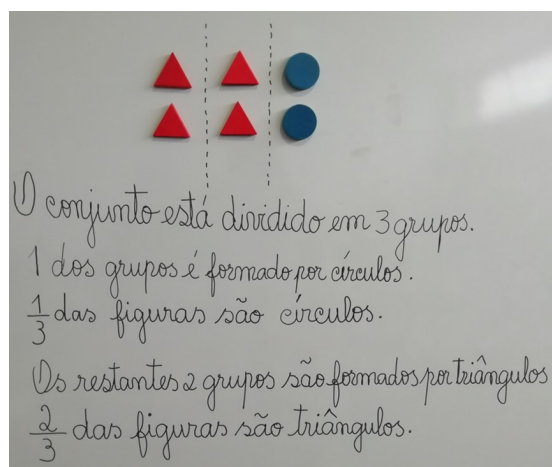 O conjunto está dividido em 3 grupos.
1 dos grupos é formado por círculos.
1/3 das figuras são círculos.
Os restantes 2 grupos são formados por triângulos
2/3 das figuras são triângulos.